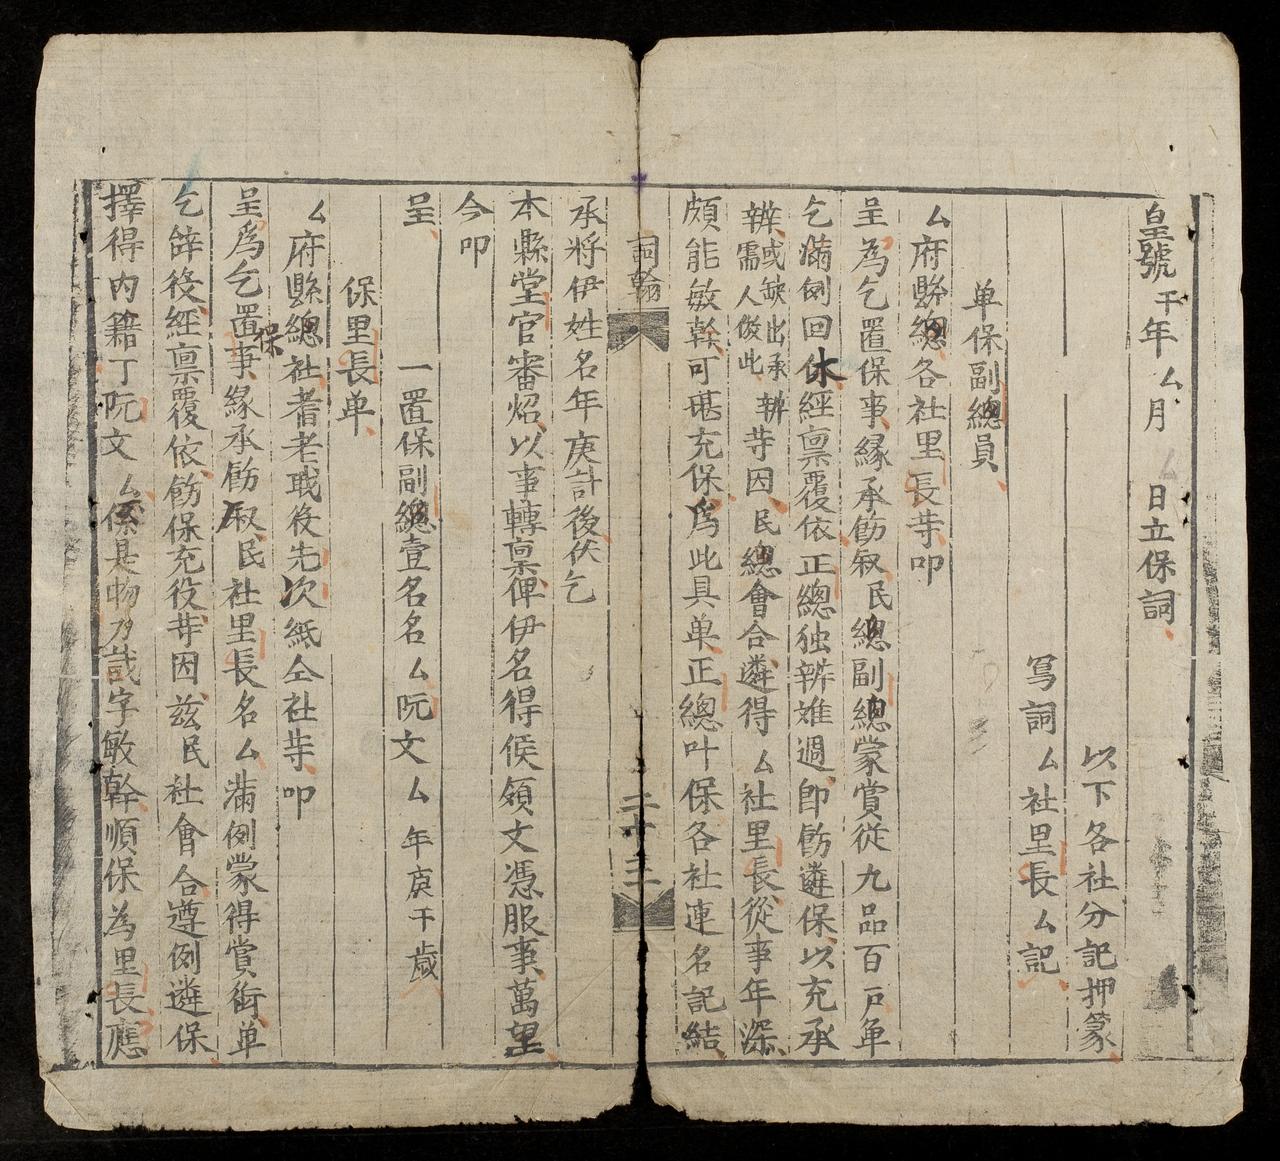 皇號干年厶月 日立保詞
以下各社分記押篆
寫詞厶社里長厶記
单保副總員
厶府縣總各社里長䓁叩
呈為乞置保事緣承飭叙民總副總蒙賞從九品百戶单
乞滿例回休經禀覆依正總独辨难週即飭遴保以充承
辨或缺出承辨
需人倣此
䓁因民總會合遴得厶社里長從事年深
頗能敏幹可堪充保為此具单正總叶保各社連名記結
詞翰
二十三
承將伊姓名年庚計後伏乞
本縣堂官審炤以事轉禀俾伊名得俟領文憑服事萬望
今叩
呈
一置保副總壹名名厶阮文厶 年庚干歲
保里長单
厶府縣總社耆老戢役先次紙仝社䓁叩
呈為乞置保事緣承飭叙民社里長名厶滿例蒙得賞銜单
乞辞役經禀覆依飭保充役䓁因兹民社會合遵例遴保
擇得内籍丁阮文厶係是物力識字敏幹順保為里長應